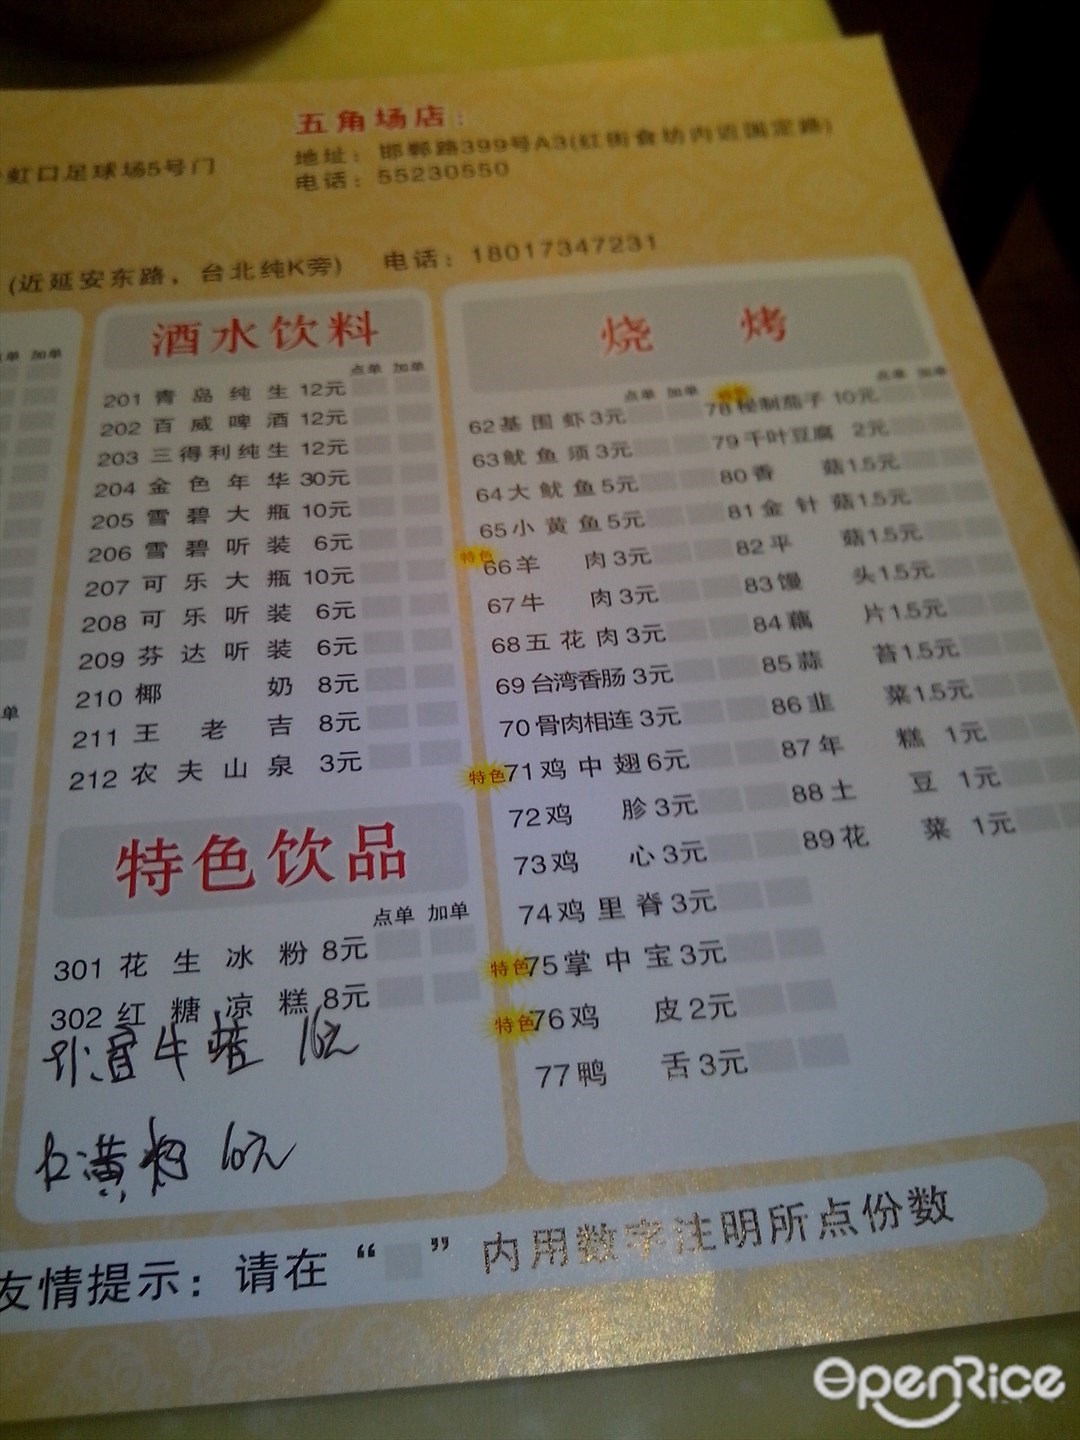 五角场店：
虹口足球场5号门
地址：邯郸路399号A3(红街食坊内近国定路)
电话：55230550
(近延安东路，台北纯K旁) 电话：18017347231
单 加单
单
酒水饮料
点单 加单
201 青岛纯生 12元
202 百威啤酒 12元
203 三得利纯生 12元
204 金色年华 30元
205 雪碧大瓶 10元
206 雪碧听装 6元
207 可乐大瓶 10元
208 可乐听装 6元
209 芬达听装 6元
210 椰奶 8元
211 王老吉 8元
212 农夫山泉 3元
特色饮品
点单 加单
301 花生冰粉 8元
302 红糖凉糕 8元
10元
烧烤
点单 加单
62 基围虾 3元
63 鱿鱼须 3元
64 大鱿鱼 5元
65 小黄鱼 5元
特色 66 羊肉 3元
67 牛肉 3元
68 五花肉 3元
69 台湾香肠 3元
70 骨肉相连 3元
特色 71 鸡中翅 6元
72 鸡胗 3元
73 鸡心 3元
74 鸡里脊 3元
特色 75 掌中宝 3元
特色 76 鸡皮 2元
77 鸭舌 3元
点单 加单
特色 78 秘制茄子 10元
79 千叶豆腐 2元
80 香菇 1.5元
81 金针菇 1.5元
82 平菇 1.5元
83 馒头 1.5元
84 藕片 1.5元
85 蒜苔 1.5元
86 韭菜 1.5元
87 年糕 1元
88 土豆 1元
89 花菜 1元
友情提示：请在“ ”内用数字注明所点份数
OpenRice